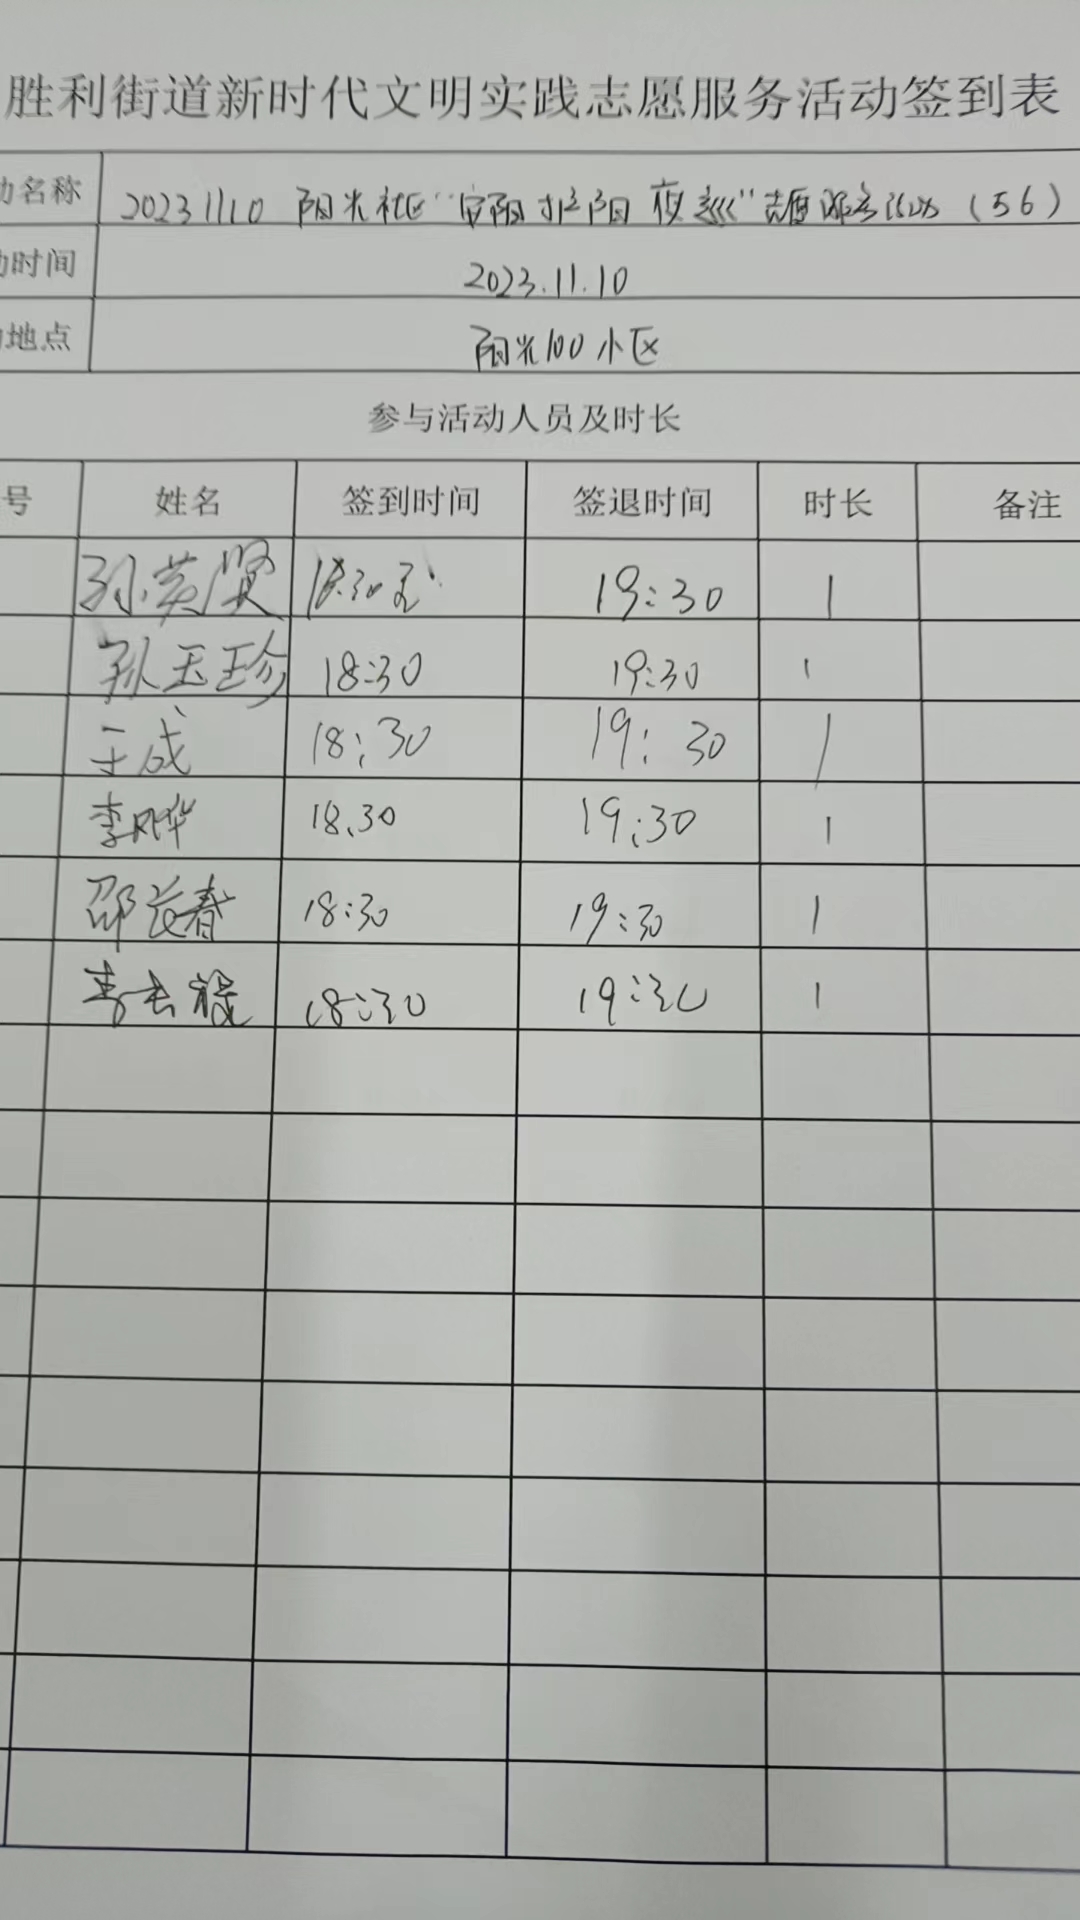 胜利街道新时代文明实践志愿服务活动签到表
动名称 20231110 阳光社区“ 阳护阳夜巡”志愿服务活动（56）
动时间 2023.11.10
地点 阳光100小区
参与活动人员及时长
号 姓名 签到时间 签退时间 时长 备注
孙英贤 18:30 19:30 1
孙玉珍 18:30 19:30 1
于成 18:30 19:30 1
李风华 18.30 19:30 1
邵长春 18:30 19:30 1
李 18:30 19:30 1